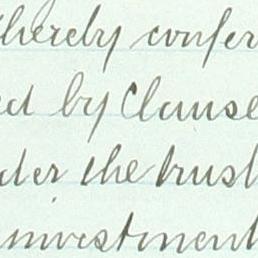 thereby confer
ed by Clause
der the trust
investment